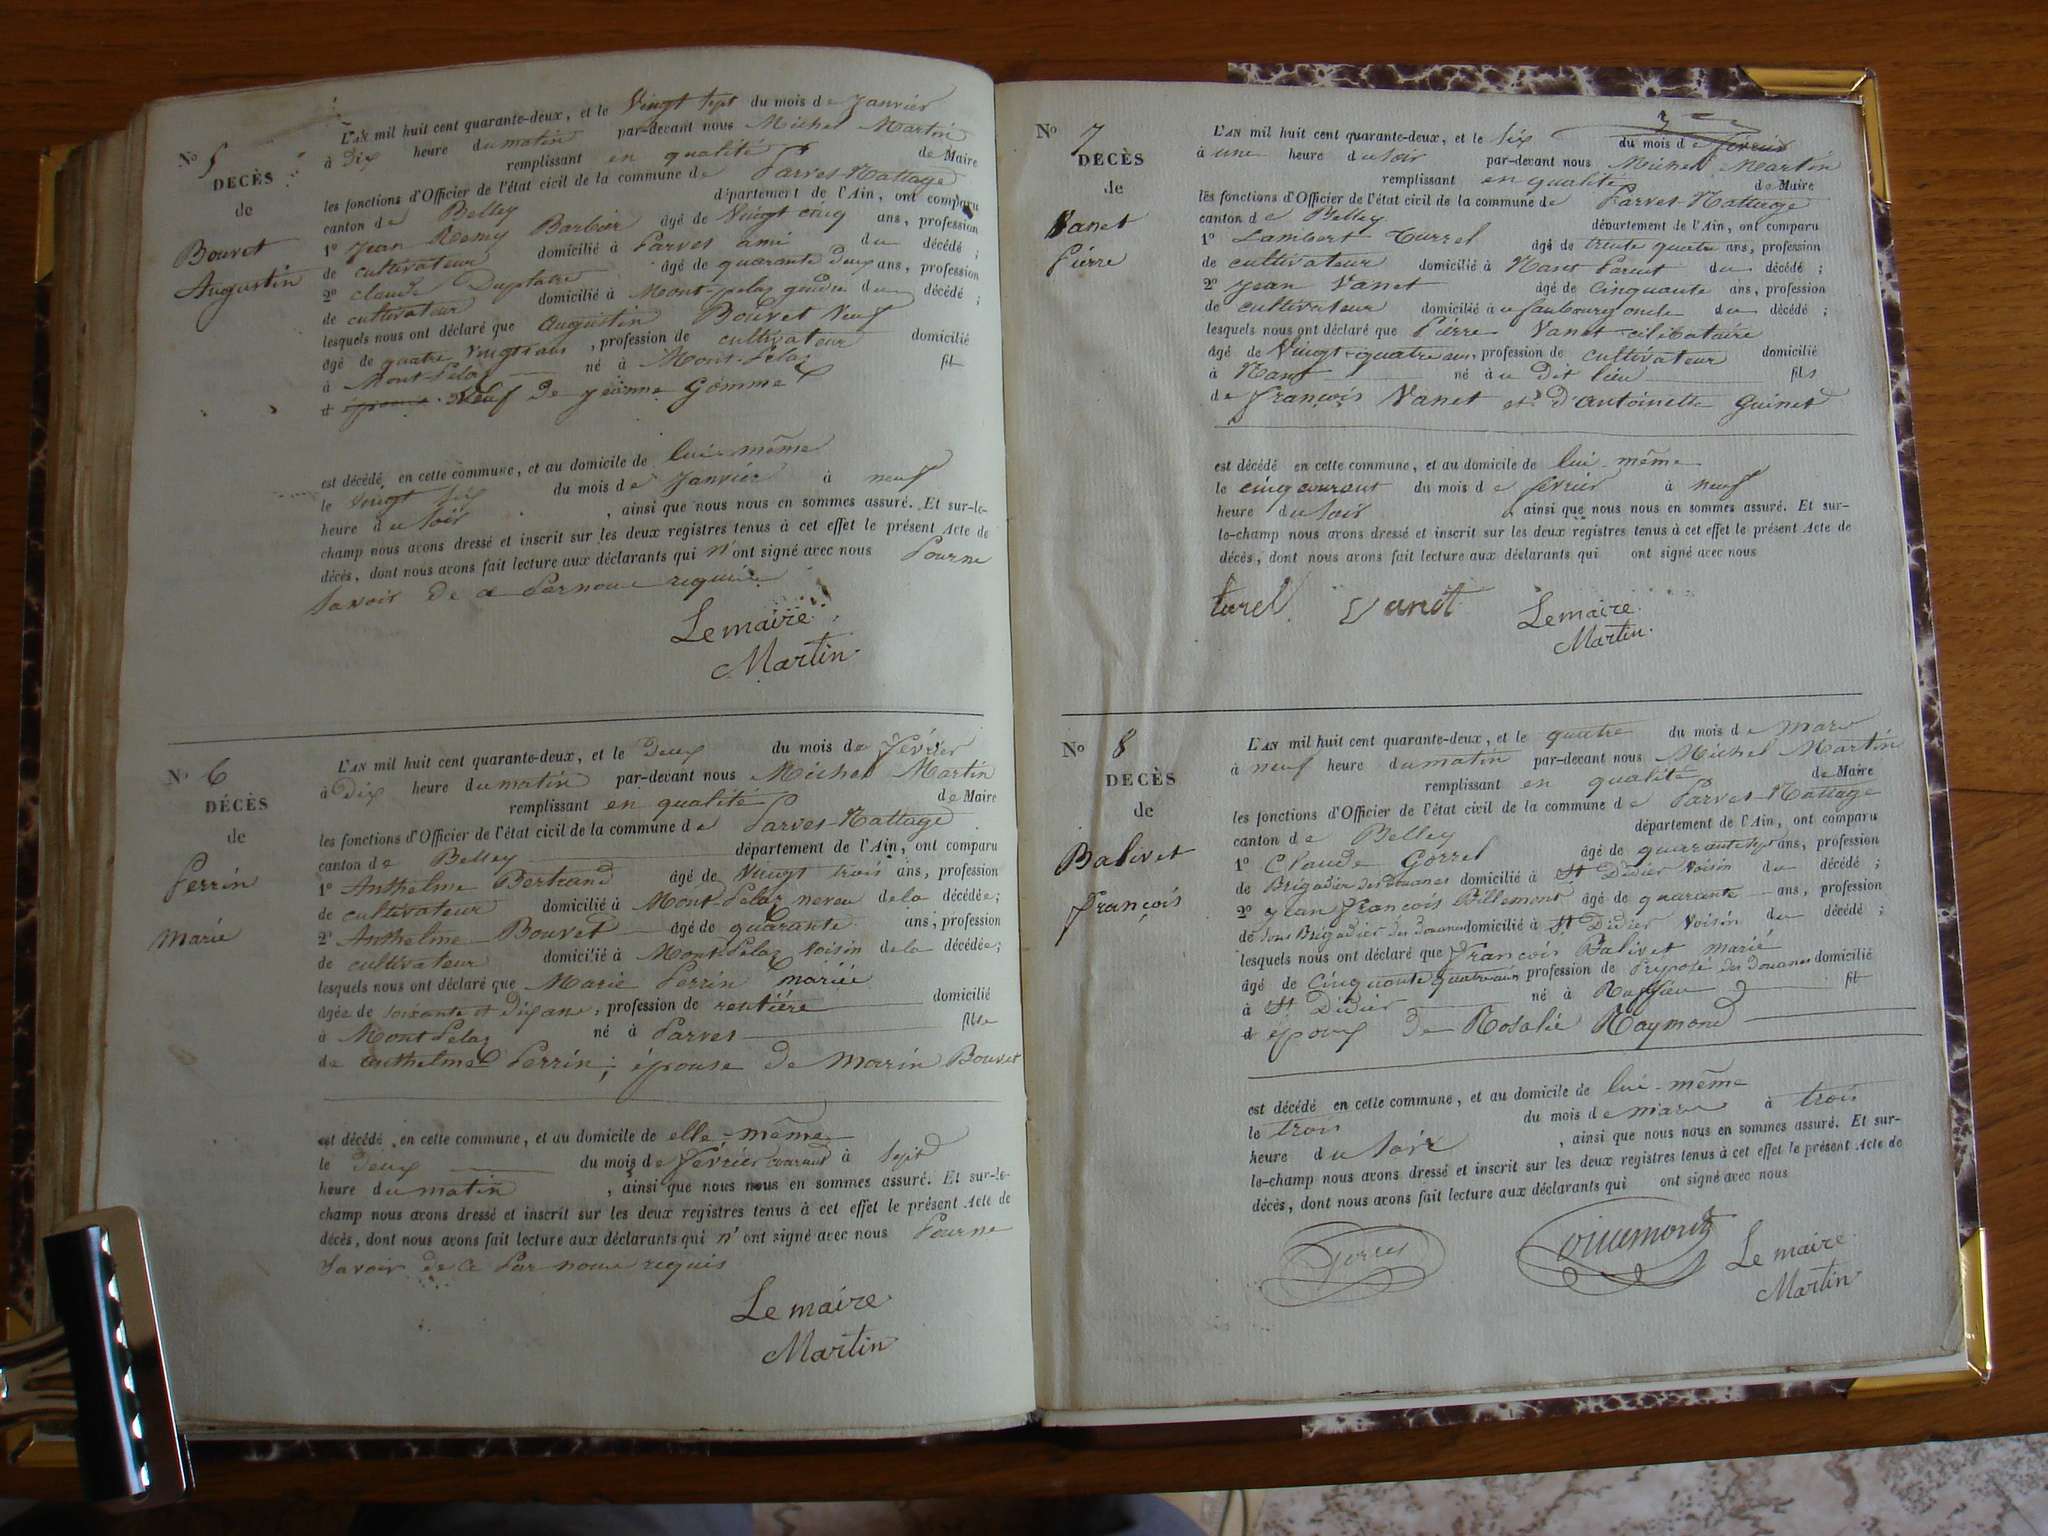 N° 5
DÉCÈS
de
Bouvet
Augustin
L'AN mil huit cent quarante-deux, et le Vingt sept du mois de Janvier
à Dix heure du matin par-devant nous Michel Martin
remplissant en qualité de Maire
les fonctions d'Officier de l'état civil de la commune de Parves-Nattage
canton de Belley département de l'Ain, ont comparu
1° Jean Remy Barbier âgé de Vingt cinq ans, profession
de cultivateur domicilié à Parves ami du décédé ;
2° claude Duplatre âgé de quarante deux ans, profession
de cultivateur domicilié à Mont-pelaz gendre du décédé ;
lesquels nous ont déclaré que Augustin Bouvet Veuf
âgé de quatre Vingts ans, profession de cultivateur domicilié
à Mont-Pelaz né à Mont-Pelaz fil
d époux veuf de jeanne Gomme
est décédé en cette commune, et au domicile de lui-même
le vingt six du mois de Janvier à neuf
heure du soir, ainsi que nous nous en sommes assuré. Et sur-le-
champ nous avons dressé et inscrit sur les deux registres tenus à cet effet le présent Acte de
décès, dont nous avons fait lecture aux déclarants qui n'ont signé avec nous Pour ne
savoir de ce Par nous requis
Le maire
Martin
N° 6
DÉCÈS
de
Perrin
Marie
L'AN mil huit cent quarante-deux, et le Deux du mois de février
à Dix heure du matin par-devant nous Michel Martin
remplissant en qualité de Maire
les fonctions d'Officier de l'état civil de la commune de Parves-Nattage
canton de Belley département de l'Ain, ont comparu
1° Anthelme Bertrand âgé de Vingt trois ans, profession
de cultivateur domicilié à Mont-Pelaz neveu de la décédée ;
2° Anthelme Bouvet âgé de quarante ans, profession
de cultivateur domicilié à Mont-Pelaz voisin de la décédée ;
lesquels nous ont déclaré que Marie Perrin mariée
âgée de soixante et Dix ans, profession de rentière domicilié
à Mont Pelaz né à Parves fille
de anthelme Perrin ; épouse de Marin Bouvet
est décédé en cette commune, et au domicile de elle-même
le Deux du mois de février courant à sept
heure du matin, ainsi que nous nous en sommes assuré. Et sur-le-
champ nous avons dressé et inscrit sur les deux registres tenus à cet effet le présent Acte de
décès, dont nous avons fait lecture aux déclarants qui n'ont signé avec nous Pour ne
savoir de ce Par nous requis
Le maire
Martin
N° 7
DÉCÈS
de
Vanet
Pierre
L'AN mil huit cent quarante-deux, et le six du mois de février
à une heure du soir par-devant nous Michel Martin
remplissant en qualité de Maire
les fonctions d'Officier de l'état civil de la commune de Parves Nattage
canton de Belley département de l'Ain, ont comparu
1° Lambert Turrel âgé de trente quatre ans, profession
de cultivateur domicilié à Nant Parent du décédé ;
2° Jean Vanet âgé de cinquante ans, profession
de cultivateur domicilié au faubourg oncle du décédé ;
lesquels nous ont déclaré que Pierre Vanet célibataire
âgé de Vingt-quatre ans, profession de cultivateur domicilié
à Nant né au Dit lieu fils
de françois Vanet et d'antoinette Guinet
est décédé en cette commune, et au domicile de lui-même
le cinq courant du mois de février à neuf
heure du soir, ainsi que nous nous en sommes assuré. Et sur-
le-champ nous avons dressé et inscrit sur les deux registres tenus à cet effet le présent Acte de
décès, dont nous avons fait lecture aux déclarants qui ont signé avec nous
turel Vanet Le maire
Martin
N° 8
DÉCÈS
de
Balivet
françois
L'AN mil huit cent quarante-deux, et le quatre du mois de mars
à neuf heure du matin par-devant nous Michel Martin
remplissant en qualité de Maire
les fonctions d'Officier de l'état civil de la commune de Parves-Nattage
canton de Belley département de l'Ain, ont comparu
1° Claude Gorrel âgé de quarante sept ans, profession
de Brigadier des Douanes domicilié à St Didier voisin du décédé ;
2° Jean François Billemont âgé de quarante ans, profession
de sous Brigadier des douanes domicilié à St Didier voisin du décédé ;
lesquels nous ont déclaré que françois Balivet marié
âgé de cinquante quatre ans profession de Préposé des Douanes domicilié
à St Didier né à Ruffieu fil
d époux de Rosalie Raymond
est décédé en cette commune, et au domicile de lui-même
le trois du mois de mars à trois
heure du soir, ainsi que nous nous en sommes assuré. Et sur-
le-champ nous avons dressé et inscrit sur les deux registres tenus à cet effet le présent Acte de
décès, dont nous avons fait lecture aux déclarants qui ont signé avec nous
Le maire
Martin